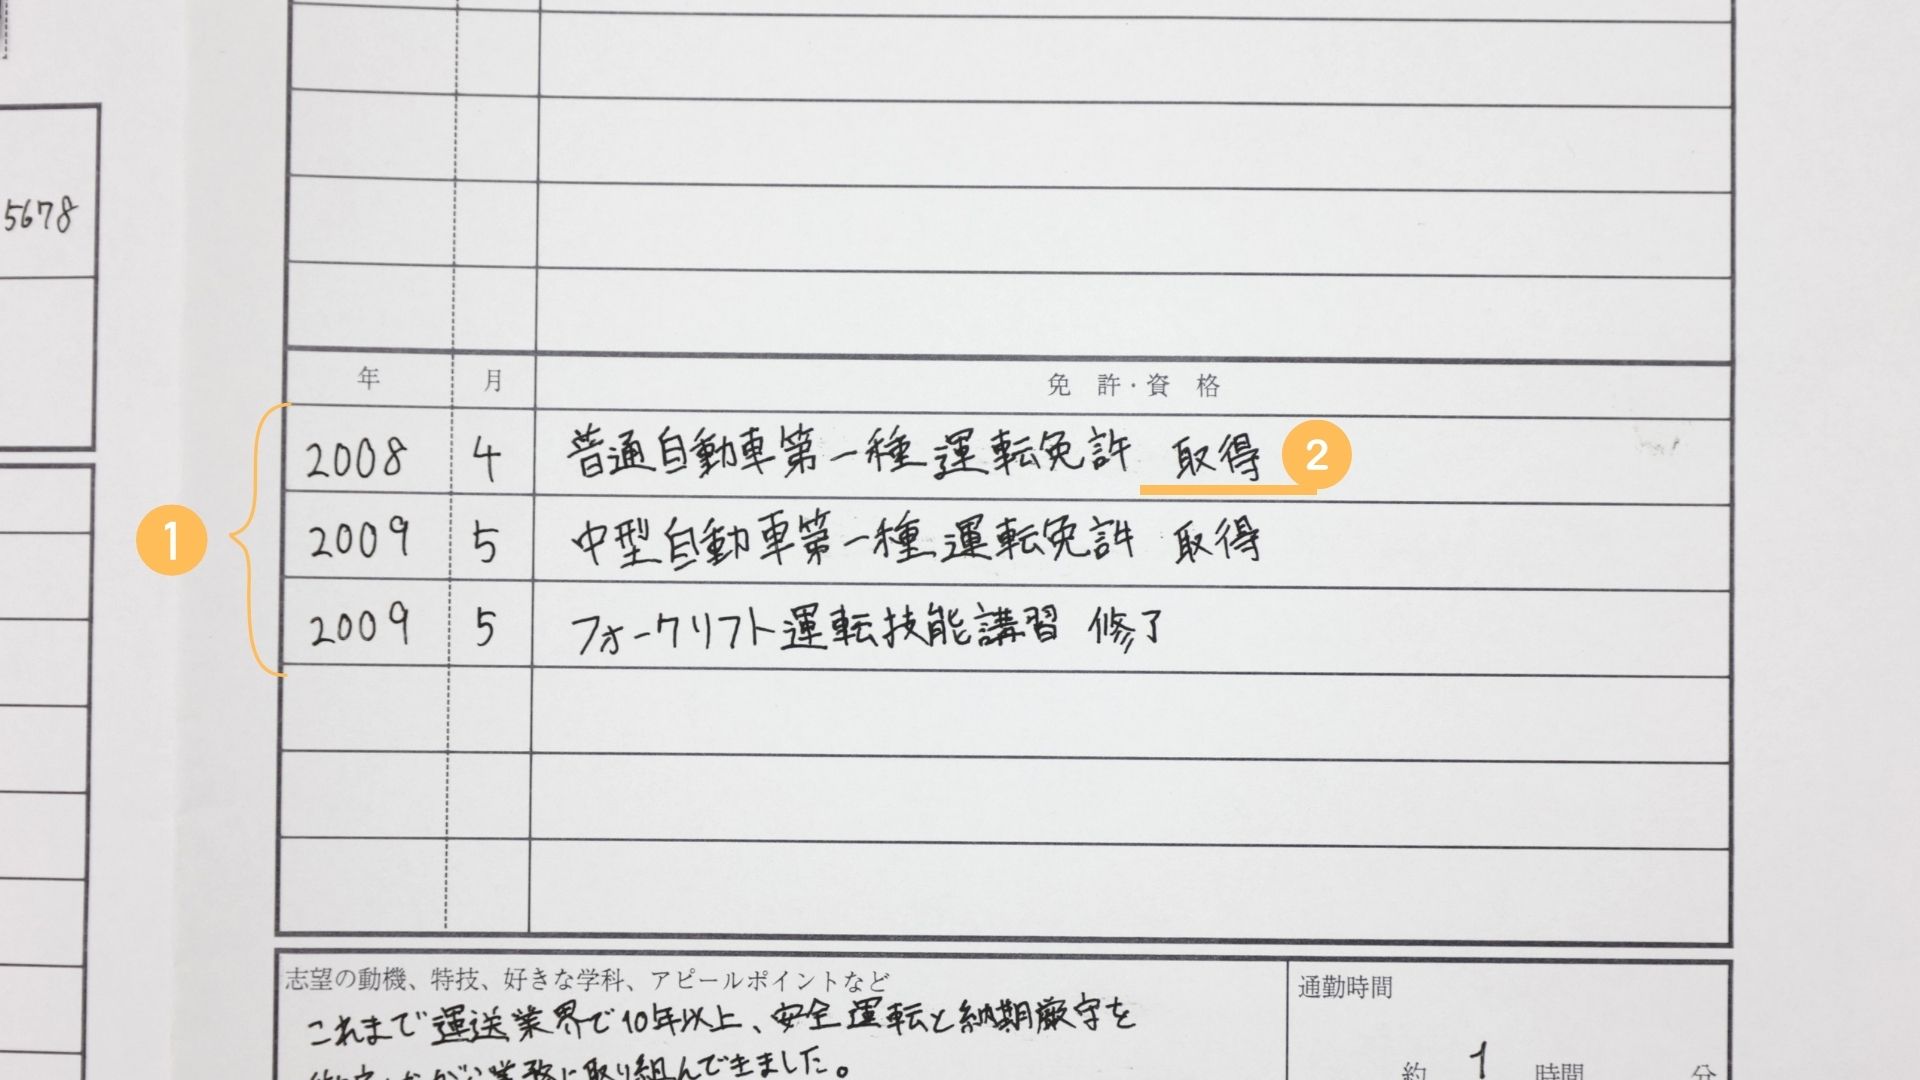 5678
年 月 免許・資格
1
2008 4 普通自動車第一種運転免許 取得 2
2009 5 中型自動車第一種運転免許 取得
2009 5 フォークリフト運転技能講習 修了
志望の動機、特技、好きな学科、アピールポイントなど
これまで運送業界で10年以上、安全運転と納期厳守を
業務に取り組んできました。
通勤時間
約 1 時間 分